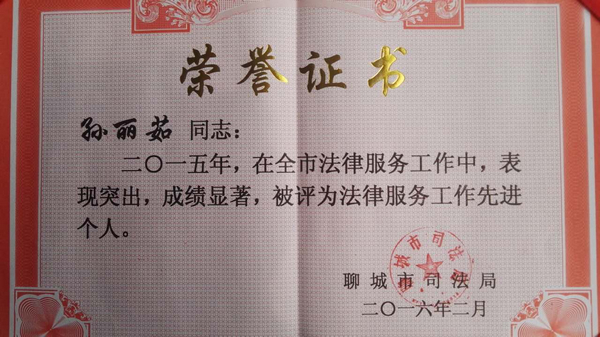 荣誉证书
孙丽茹 同志：
二〇一五年，在全市法律服务工作中，表
现突出，成绩显著，被评为法律服务工作先进
个人。
聊城市司法局
聊城市司法局
二〇一六年二月